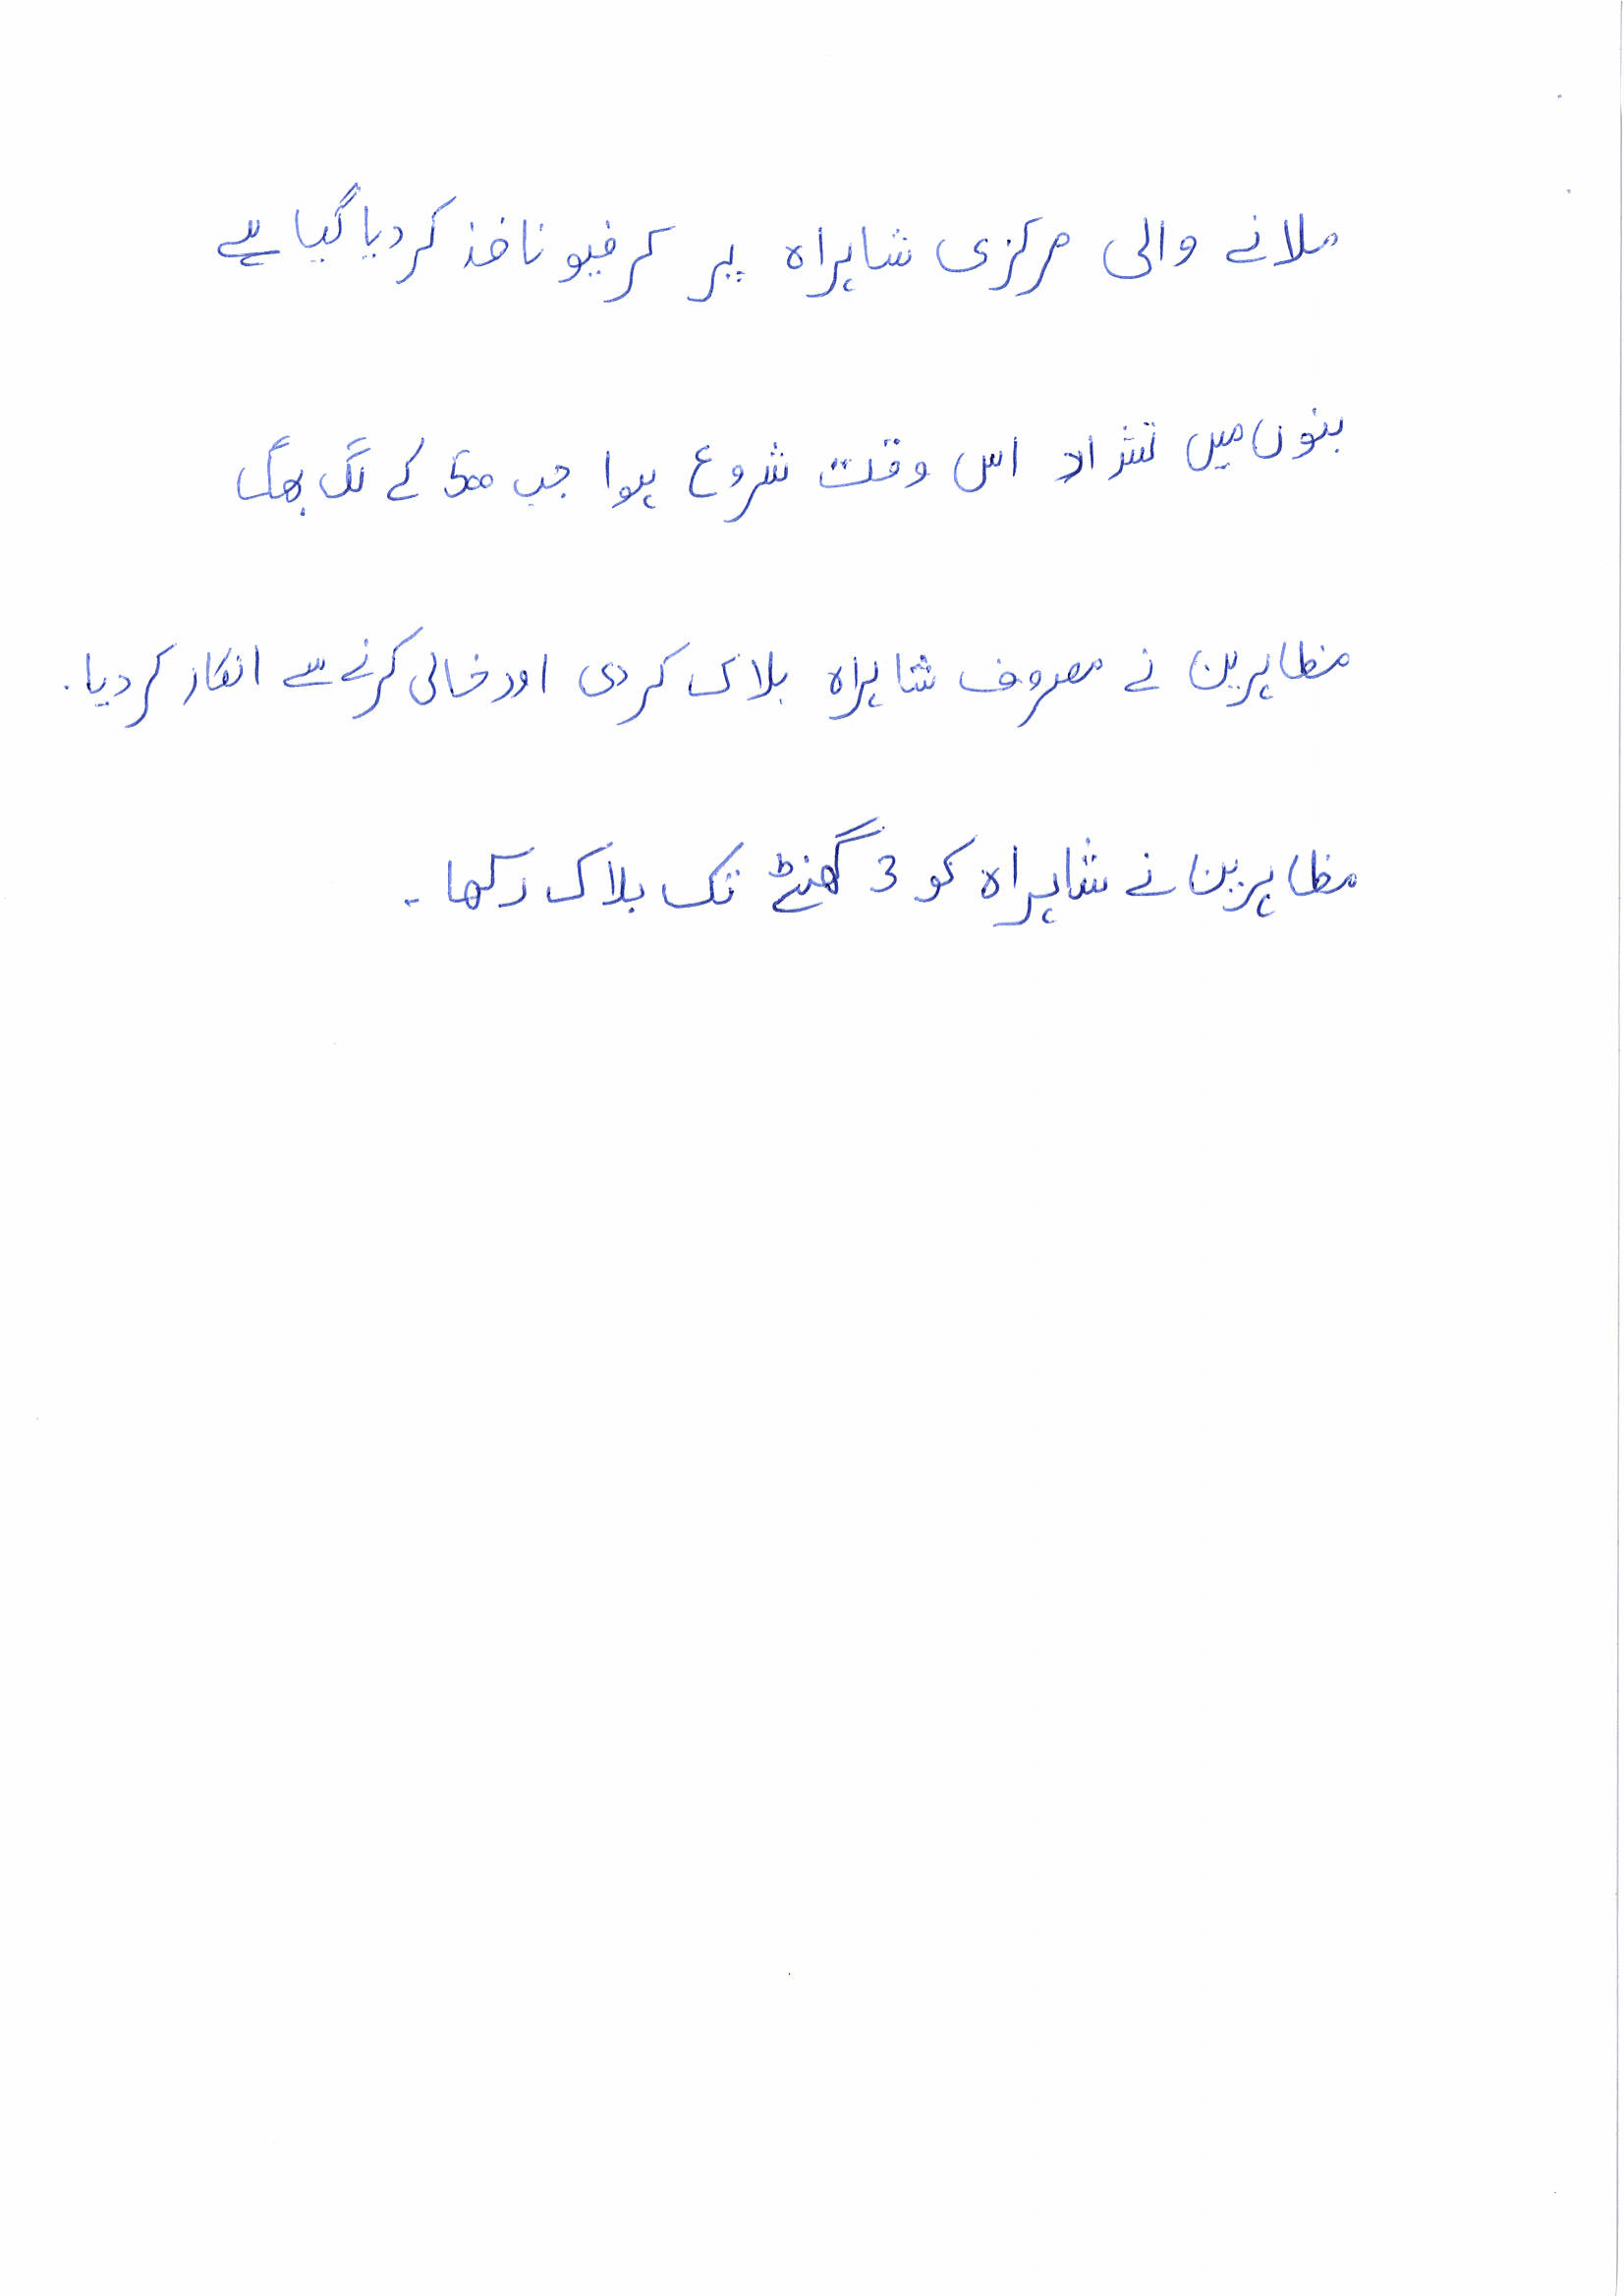 ملانے والی مرکزی شاہراہ پر کرفیو نافذ کر دیا گیا ہے
بنوں میں تشداد اس وقت شروع ہوا جب 500 کے لگ بھگ
مظاہرین نے معروف شاہراہ بلاک کر دی اور خالی کرنے سے انکار کر دیا.
مظاہرین نے شاہراہ کو 3 گھنٹے تک بلاک رکھا ۔